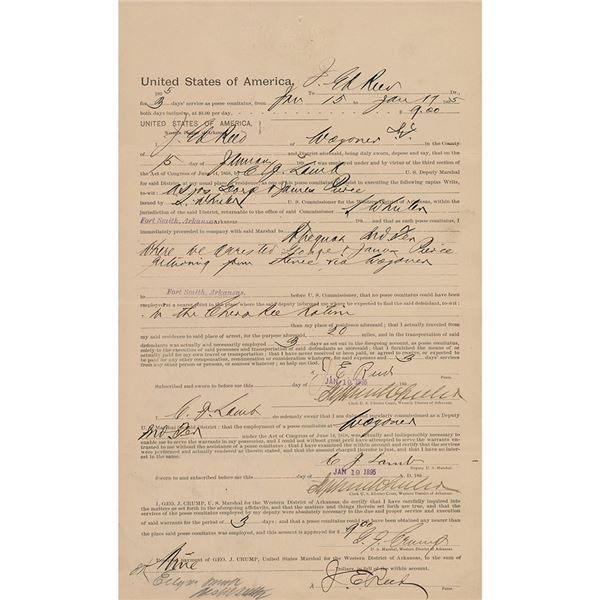 United States of America,
To J. Ed Reed Dr.,
1895
for 3 days' service as posse comitatus, from Jan 15 to Jan 17 1895
both days inclusive, at $3.00 per day, $9.00
UNITED STATES OF AMERICA,
Western District of Arkansas.
J. Ed Reed of Wagoner I.T. in the County
and District aforesaid, being duly sworn, depose and say, that on the
15 day of January 189 I was employed under and by virtue of the third section of the
Act of Congress of June 14, 1868, by C. J. Lamb U. S. Deputy Marshal
for said District, at my usual place of residence, as one of his posse comitatus in executing the following capias Writs,
to-wit: George & James Pierce
issued by S. Wheeler U. S. Commissioner for the Western District of Arkansas, within the
jurisdiction of the said District, returnable to the office of said Commissioner S. Wheeler
Fort Smith, Arkansas Arkansas, 189 and that as such posse comitatus, I
immediately proceeded in company with said Marshal to Ind Ter
where we arrested George & James Pierce
returning from thence via Wagoner
to Fort Smith, Arkansas. before U. S. Commissioner, that no posse comitatus could have been
employed at a nearer point to the place where the said deputy informed me where he expected to find the said defendant, to-wit:
in the Cherokee Nation
than my place of residence aforesaid; that I actually traveled from
my said residence to said place of arrest, for the purpose aforesaid, 20 miles, and in the transportation of said
defendants was actually and necessarily employed 3 days as set out in the foregoing account, as posse comitatus,
solely in the execution of said processes and transportation of said defendants as aforesaid; that I furnished the means of or
actually paid for my own travel or transportation; that I have never received or been paid, or agreed to receive, or expected to
be paid for any other compensation, remuneration or consideration whatever, for said expenses and 3 days' services from
any other person or persons, or sources whatever; so help me God.
J. E. Reed Posse.
Subscribed and sworn to before me this day of JAN 19 1895 189
Stephen Wheeler
Clerk U. S. District Court, Western District of Arkansas.
C. J. Lamb do solemnly swear that I am duly and regularly commissioned as a Deputy
U. S. Marshal for said District; that the employment of a posse comitatus at Wagoner
Ind Ter under the Act of Congress of June 14, 1878, was actually and indispensably necessary to
enable me to serve the warrants in my possession, and I could not without great peril have attempted to serve the warrants en-
trusted to me without the assistance of a posse comitatus; that I have examined the within account and certify that the services were
performed and actually rendered as therein stated, and that the amount claimed is reasonable and just, and that I have no inter-
est in the same.
C. J. Lamb
Deputy U. S. Marshal.
Sworn to and subscribed before me this day of JAN 19 1895 A. D. 189
Stephen Wheeler
Clerk U. S. District Court, Western District of Arkansas.
I, GEO. J. CRUMP, U. S. Marshal for the Western District of Arkansas, do certify that I have carefully inquired into
the matters set forth in the aforegoing affidavits, and that the matters and things therein set forth are true, and that the
services of the posse comitatus employed by my deputy were absolutely necessary to the due and proper service and execution
of said warrants for the period of 3 days; and that a posse comitatus could not have been obtained any nearer than
the place said posse comitatus was employed, and this amount is approved for $ 9.00
G. J. Crump
U. S. Marshal, Western District of Arkansas.
payment of GEO. J. CRUMP, United States Marshal for the Western District of Arkansas, in the sum of
Nine Dollars, in full of the within account.
J. E. Reed